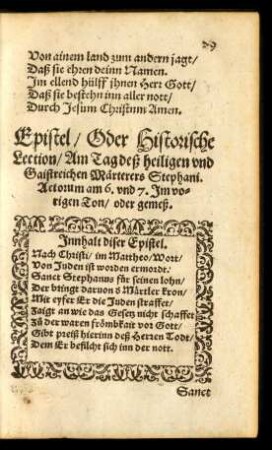 29
Von ainem land zum andern jagt/
Daß sie ehren deinn Namen.
Im ellend hülff jhnen Herr Gott/
Daß sie bestehn inn aller nott/
Durch Jesum Christum Amen.
Epistel/ Oder Historische
Lection/ Am Tag deß heiligen vnd
Gaistreichen Märterers Stephani.
Actorum am 6. vnd 7. Im vo-
rigen Ton/ oder gemeß.
Innhalt diser Epistel.
Nach Christi/ im Mattheo/ Wort/
Von Juden ist worden ermordt/
Sanct Stephanus für seinen lohn/
Der bringt daruon s Märtler kron/
Mit eyfer Er die Juden straffet/
Zaigt an wie das Gesetz nicht schaffet
Zů der waren frömbkait vor Gott/
Gibt preiß hierinn deß Herren Todt/
Dem Er befilcht sich inn der nott.
Sanct